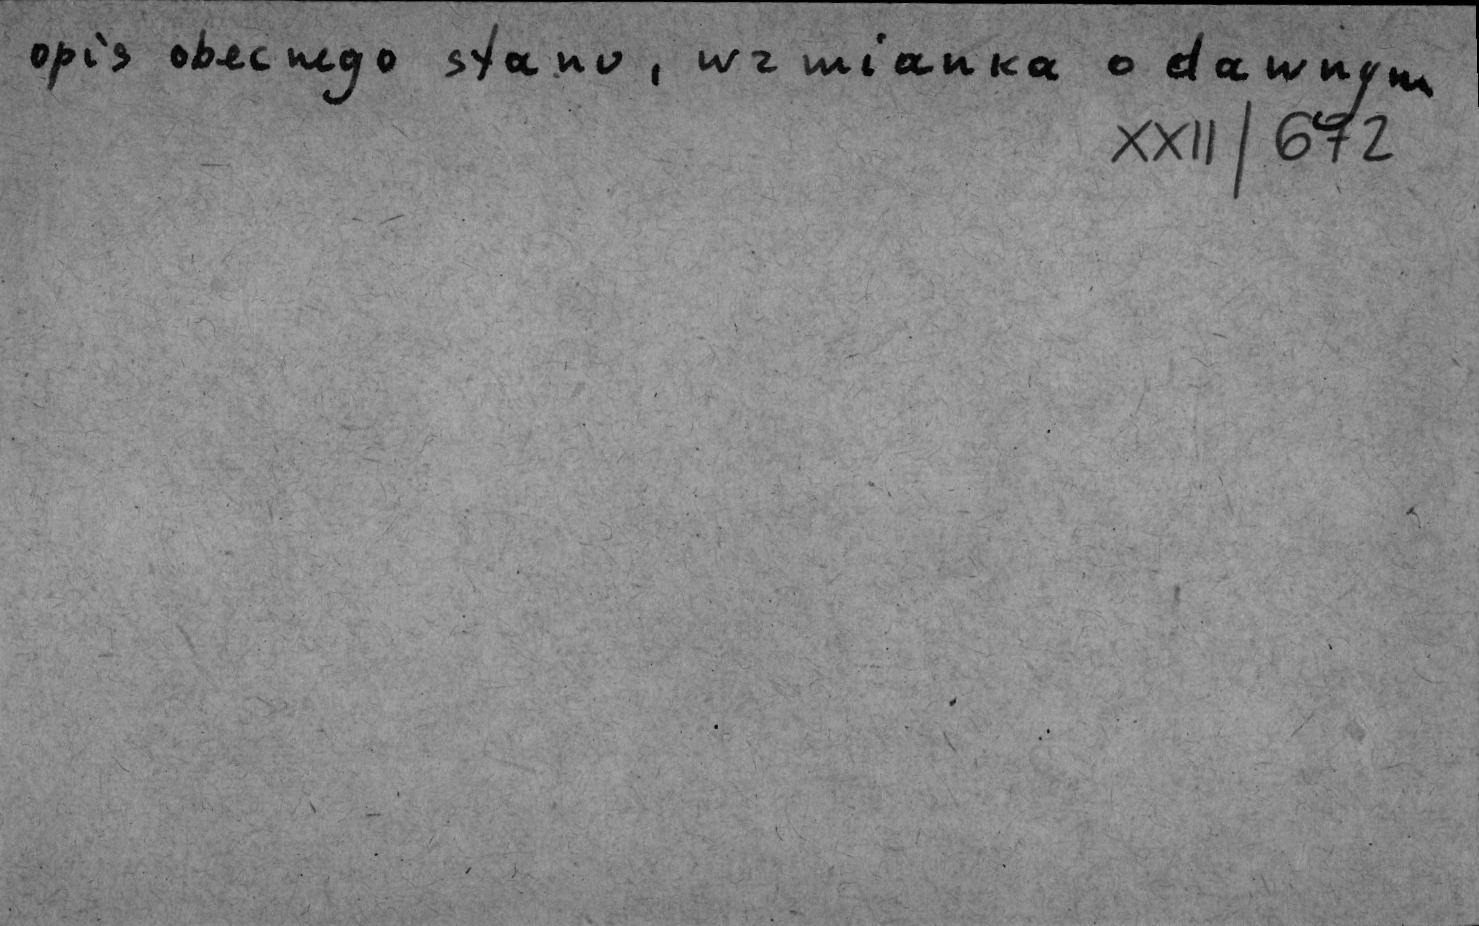 opis obecnego stanu, wzmianka o dawnym
XXII/672